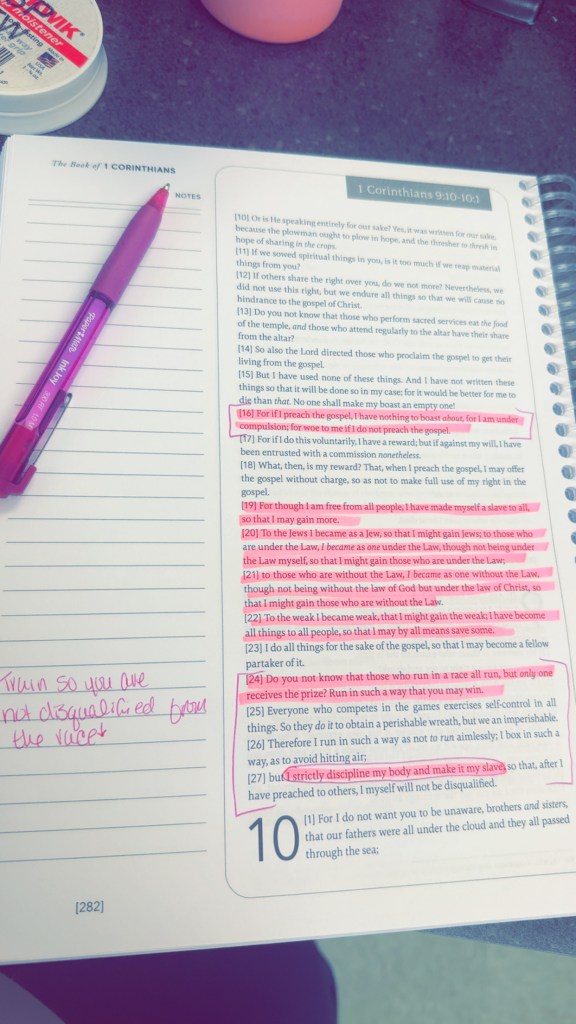 WIK
moistener
The Book of 1 CORINTHIANS
NOTES
1 Corinthians 9:10-10:1
[10] Or is He speaking entirely for our sake? Yes, it was written for our sake,
because the plowman ought to plow in hope, and the thresher to thresh in
hope of sharing in the crops.
[11] If we sowed spiritual things in you, is it too much if we reap material
things from you?
[12] If others share the right over you, do we not more? Nevertheless, we
did not use this right, but we endure all things so that we will cause no
hindrance to the gospel of Christ.
[13] Do you not know that those who perform sacred services eat the food
of the temple, and those who attend regularly to the altar have their share
from the altar?
[14] So also the Lord directed those who proclaim the gospel to get their
living from the gospel.
[15] But I have used none of these things. And I have not written these
things so that it will be done so in my case; for it would be better for me to
die than that. No one shall make my boast an empty one!
[16] For if I preach the gospel, I have nothing to boast about, for I am under
compulsion; for woe to me if I do not preach the gospel.
[17] For if I do this voluntarily, I have a reward; but if against my will, I have
been entrusted with a commission nonetheless.
[18] What, then, is my reward? That, when I preach the gospel, I may offer
the gospel without charge, so as not to make full use of my right in the
gospel.
[19] For though I am free from all people, I have made myself a slave to all,
so that I may gain more.
[20] To the Jews I became as a Jew, so that I might gain Jews; to those who
are under the Law, I became as one under the Law, though not being under
the Law myself, so that I might gain those who are under the Law;
[21] to those who are without the Law, I became as one without the Law,
though not being without the law of God but under the law of Christ, so
that I might gain those who are without the Law.
[22] To the weak I became weak, that I might gain the weak; I have become
all things to all people, so that I may by all means save some.
[23] I do all things for the sake of the gospel, so that I may become a fellow
partaker of it.
[24] Do you not know that those who run in a race all run, but only one
receives the prize? Run in such a way that you may win.
[25] Everyone who competes in the games exercises self-control in all
things. So they do it to obtain a perishable wreath, but we an imperishable.
[26] Therefore I run in such a way as not to run aimlessly; I box in such a
way, as to avoid hitting air;
[27] but I strictly discipline my body and make it my slave, so that, after I
have preached to others, I myself will not be disqualified.
10 [1] For I do not want you to be unaware, brothers and sisters,
that our fathers were all under the cloud and they all passed
through the sea;
Train so you are
not disqualified from
the race
[282]
Paper Mate InkJoy